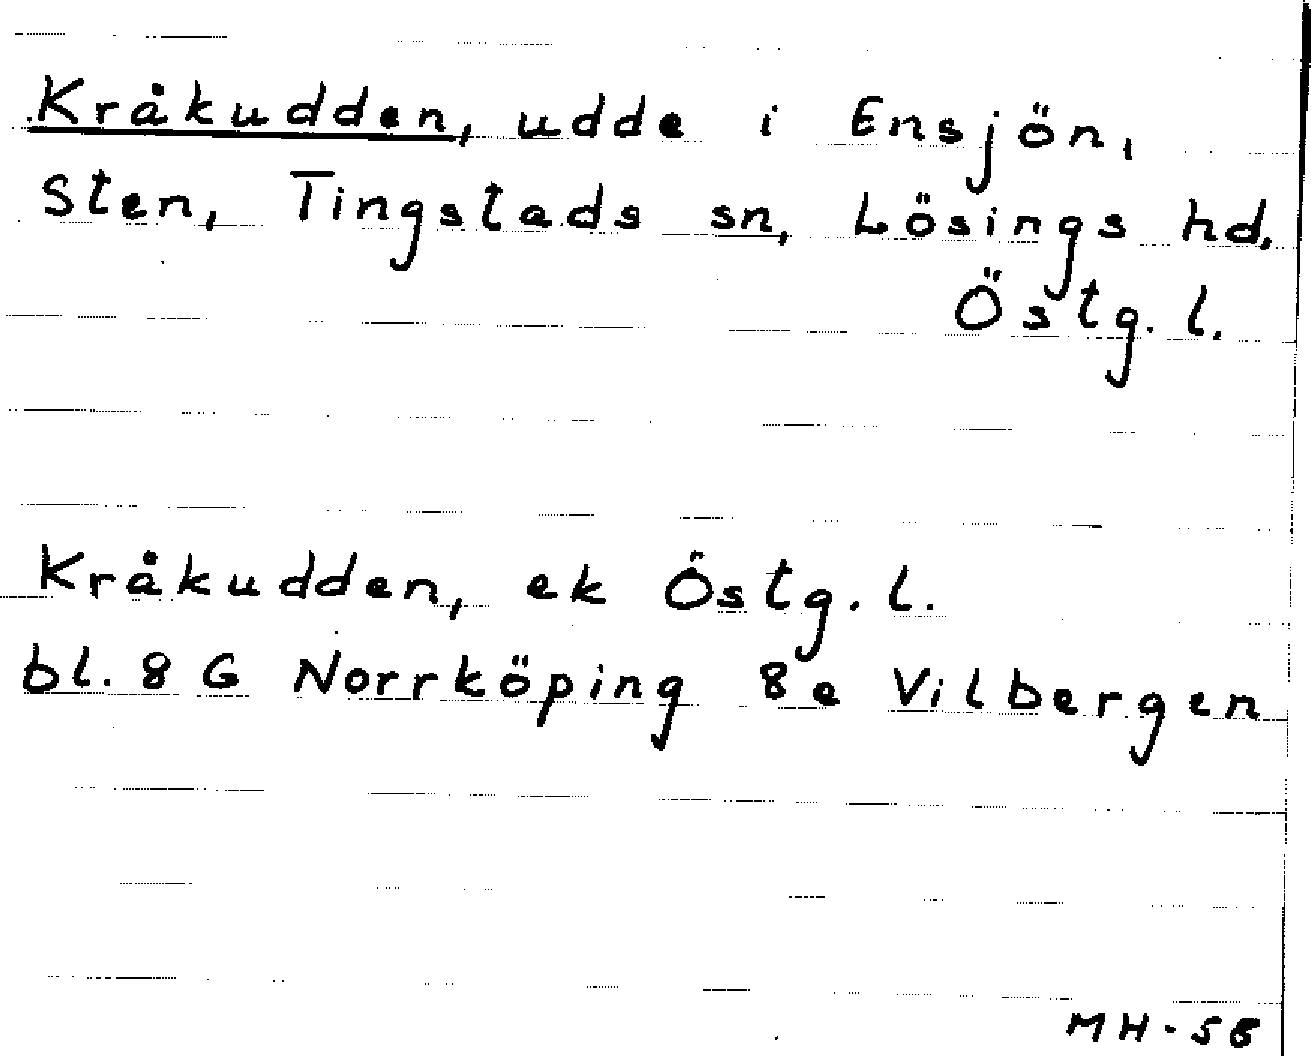 Kråkudden, udde i Ensjön,
Sten, Tingstads sn, Lösings hd,
Östg. l.
Kråkudden, ek Östg. l.
bl. 8 G Norrköping 8e Vilbergen
MH-58